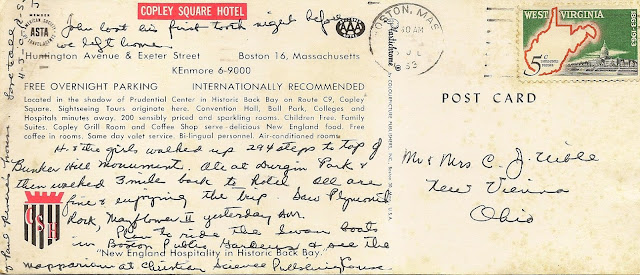 COPLEY SQUARE HOTEL
MEMBER AMERICAN SOCIETY
ASTA
TRAVEL AGENTS
AAA
John lost his first tooth night before
we left home.
Huntington Avenue & Exeter Street Boston 16, Massachusetts
KEnmore 6-9000
FREE OVERNIGHT PARKING INTERNATIONALLY RECOMMENDED
Located in the shadow of Prudential Center in Historic Back Bay on Route C9, Copley
Square. Sightseeing Tours originate here. Convention Hall, Ball Park, Colleges and
Hospitals minutes away. 200 sensibly priced and sparkling rooms. Children Free. Family
Suites. Copley Grill Room and Coffee Shop serve delicious New England food. Free
coffee in rooms. Same day valet service. Bi-lingual personnel. Air-conditioned rooms.
H. & the girls walked up 294 steps to top of
Bunker Hill monument. Ate at Durgin Park &
then walked 3 mile back to hotel All are
fine & enjoying the trip. Saw Plymouth
Rock, Mayflower II yesterday
Plan to ride the Swan boats
in Boston Public Gardens & see the
mapparium at Christian Science Publishing House
Paul Revere's house
CSH
"New England Hospitality in Historic Back Bay"
Plastichrome
BOSTON, MASS
AM
JL
63
WEST VIRGINIA
1863-1963
5¢
POST CARD
Mr & Mrs C. J. Uible
New Vienna
Ohio